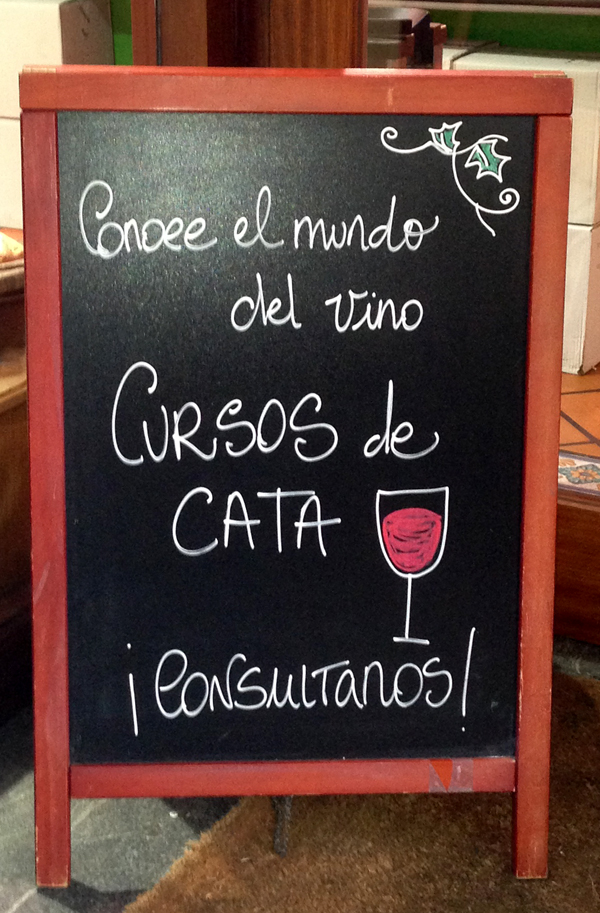 Conoce el mundo
del vino
CURSOS de
CATA
¡CONSULTANOS!